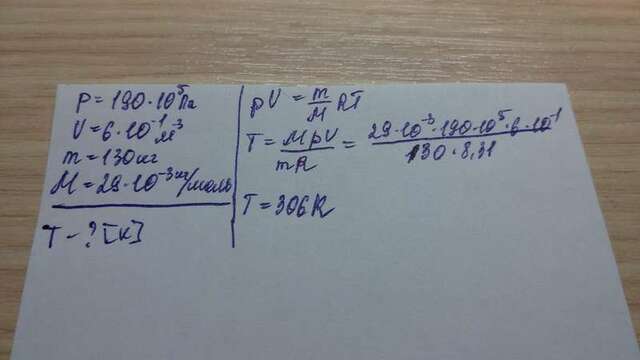 P = 190·10⁵Па
V = 6·10⁻¹м³
m = 130кг
M = 29·10⁻³кг/моль
T - ? [K]
pV = m/M RT
T = MpV/mR = 29·10⁻³·190·10⁵·6·10⁻¹/130·8,31
T = 306K